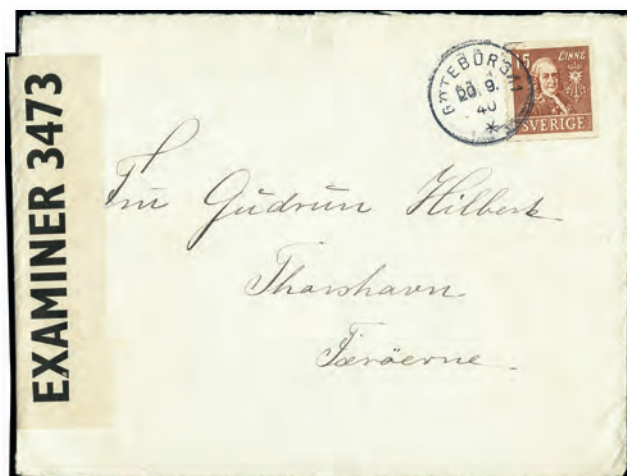 EXAMINER 3473
20. 9.
40
15 LINNE
SVERIGE
Fru Gudrun Hilbert
Thorshavn
Færöerne.